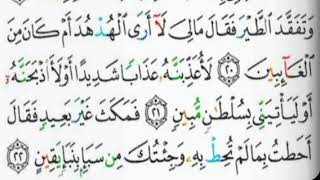 وَتَفَقَّدَ ٱلطَّيْرَ فَقَالَ مَالِىَ لَآ أَرَى ٱلْهُدْهُدَ أَمْ كَانَ مِنَ
ٱلْغَآئِبِينَ ٢٠ لَأُعَذِّبَنَّهُۥ عَذَابًا شَدِيدًا أَوْ لَأَا۟ذْبَحَنَّهُۥٓ
أَوْ لَيَأْتِيَنِّى بِسُلْطَٰنٍ مُّبِينٍ ٢١ فَمَكَثَ غَيْرَ بَعِيدٍ فَقَالَ
أَحَطتُ بِمَا لَمْ تُحِطْ بِهِۦ وَجِئْتُكَ مِن سَبَإٍۭ بِنَبَإٍ يَقِينٍ ٢٢